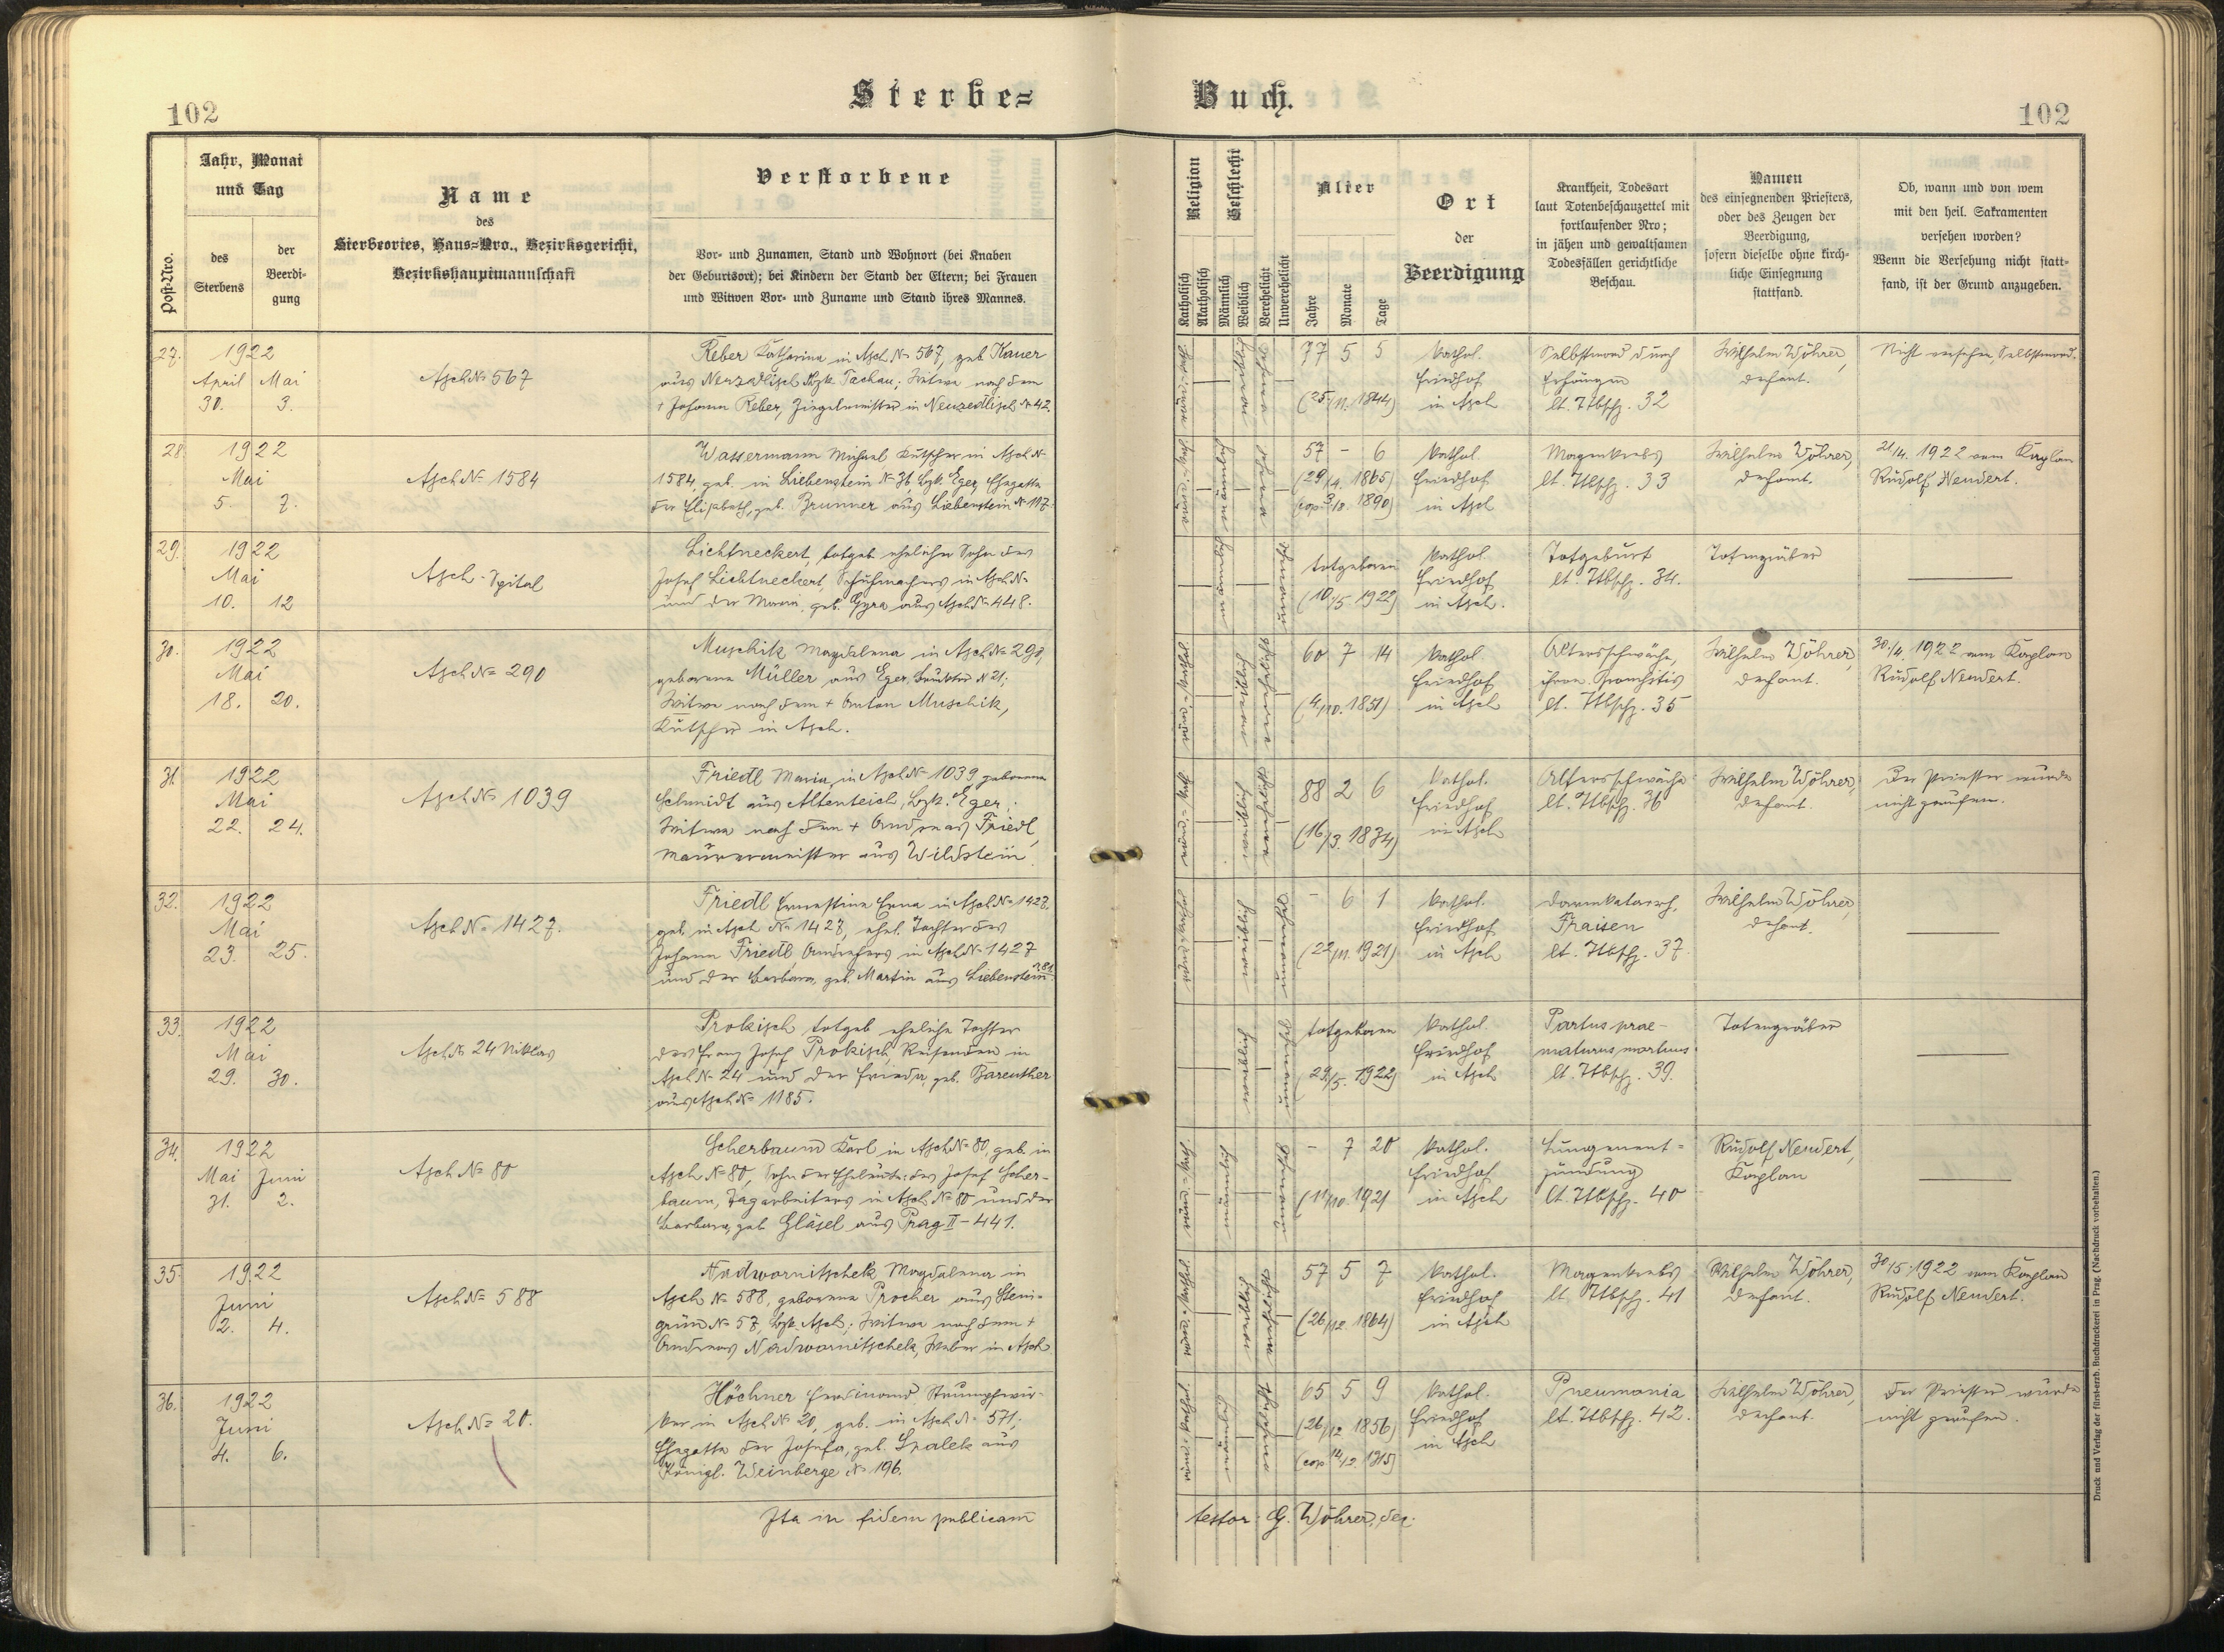 102
Sterbe=
Buch.
102
Post-Nro.
Jahr, Monat
und Tag
des
Sterbens
der
Beerdi-
gung
Name
des
Sterbeortes, Haus-Nro., Bezirksgericht,
Bezirkshauptmannschaft
Verstorbene
Vor- und Zunamen, Stand und Wohnort (bei Knaben
der Geburtsort); bei Kindern der Stand der Eltern; bei Frauen
und Witwen Vor- und Zuname und Stand ihres Mannes.
Religion
Katholisch
Akatholisch
Geschlecht
Männlich
Weiblich
Verehelicht
Unverehelicht
Alter
Jahre
Monate
Tage
Ort
der
Beerdigung
Krankheit, Todesart
laut Totenbeschauzettel mit
fortlaufender Nro;
in jähen und gewaltsamen
Todesfällen gerichtliche
Beschau.
Namen
des einsegnenden Priesters,
oder des Zeugen der
Beerdigung,
sofern dieselbe ohne kirch-
liche Einsegnung
stattfand.
Ob, wann und von wem
mit den heil. Sakramenten
versehen worden?
Wenn die Versehung nicht statt-
fand, ist der Grund anzugeben.
27. 1922
April Mai
30. 3.
Asch № 567
Reber Katharina in Asch № 567, geb. Kauer
aus Neuzedlisch Bzk. Tachau; Witwe nach dem
+ Johann Reber, Ziegelmeister in Neuzedlisch № 42.
weiblich
77 5 5
(25/11. 1844)
kathol.
Friedhof
in Asch
Selbstmord durch
Erhängen
lt. Ttbschz. 32
Wilhelm Wöhrer,
Dechant.
Nicht versehen, Selbstmord.
28. 1922
Mai
5. 7.
Asch № 1584
Wassermann Michael Kutscher in Asch №
1584, geb. in Liebenstein № 36 Bzk. Eger, Ehegatte
der Elisabeth, geb. Brunner aus Liebenstein № 117.
männlich
57 – 6
(29/4. 1865)
(cop 3/8. 1890)
kathol.
Friedhof
in Asch
Magenkrebs
lt. Ttbschz. 33
Wilhelm Wöhrer,
Dechant.
21/4. 1922 vom Kaplan
Rudolf Neudert.
29. 1922
Mai
10. 12
Asch - Spital
Lichtneckert, totgeb. ehelicher Sohn des
Josef Lichtneckert, Schuhmachers in Asch №
und der Maria, geb. Gyra aus Asch № 448.
männlich
totgeboren
(10/5. 1922)
kathol.
Friedhof
in Asch.
Totgeburt
lt. Ttbschz. 34.
Totengräber
30. 1922
Mai
18. 20.
Asch № 290
Muschik Magdalena in Asch № 290,
geborene Müller aus Eger, № 21;
Witwe nach dem + Anton Muschik,
Kutscher in Asch.
röm.-kathol.
weiblich
60 7 14
(4/10. 1851)
kathol.
Friedhof
in Asch
Altersschwäche,
chron. Bronchitis
lt. Ttbschz. 35
Wilhelm Wöhrer,
Dechant.
30/4. 1922 vom Kaplan
Rudolf Neudert.
31. 1922
Mai
22. 24.
Asch № 1039
Friedl Maria, in Asch № 1039 geborene
Schmidt aus Altenteich, Bzk. Eger;
Witwe nach dem + Andreas Friedl,
Maurermeister aus Wildstein.
weiblich
88 2 6
(16/3. 1834)
kathol.
Friedhof
in Asch
Altersschwäche
lt. Ttbschz. 36
Wilhelm Wöhrer,
Dechant.
Der Priester wurde
nicht gerufen.
32. 1922
Mai
23. 25.
Asch № 1427.
Friedl Ernestine Erna in Asch № 1427,
geb. in Asch № 1427, ehel. Tochter des
Johann Friedl, in Asch № 1427
und der Barbara, geb. Martin aus Liebenstein
weiblich
– 6 1
(22/11. 1921)
kathol.
Friedhof
in Asch
Darmkatarrh,
Fraisen
lt. Ttbschz. 37
Wilhelm Wöhrer,
Dechant.
33. 1922
Mai
29. 30.
Asch № 24 Niklas
Prokisch totgeb. eheliche Tochter
des Franz Josef Prokisch, Reisenden in
Asch № 24 und der Frieda geb. Bareuther
aus Asch № 1185.
weiblich
totgeboren
(29/5. 1922)
kathol.
Friedhof
in Asch
Partus prae-
maturus mortuus
lt. Ttbschz. 39.
Totengräber
34. 1922
Mai Juni
31. 2.
Asch № 80
Scherbaum Karl in Asch № 80, geb. in
Asch № 80, Sohn der Eheleute: des Josef Scher-
baum, Tagarbeiters in Asch № 80 und der
Barbara, geb. Gläsel aus Prag II - 441.
männlich
– 7 20
(11/10. 1921
kathol.
Friedhof
in Asch
Lungenent=
zündung
lt. Ttbschz. 40
Rudolf Neudert,
Kaplan
35. 1922
Juni
2. 4.
Asch № 588
Nadwornitschek Magdalena in
Asch № 588, geborene Procher aus Stein-
grün № 57, Bzk. Asch; Witwe nach dem +
Andreas Nadwornitschek, Weber in Asch.
röm.-kathol.
weiblich
57 5 7
(26/12. 1864)
kathol.
Friedhof
in Asch
Magenkrebs
lt. Ttbschz. 41
Wilhelm Wöhrer,
Dechant.
30/5. 1922 vom Kaplan
Rudolf Neudert.
36. 1922
Juni
4. 6.
Asch № 20.
Höchner Ferdinand Strumpfwir-
ker in Asch № 20, geb. in Asch № 571;
Ehegatte der Josefa, geb. Spalek aus
Königl. Weinberge № 196.
röm.-kathol.
männlich
65 5 9
(26/12 1856)
(cop 14/2. 1915)
kathol.
Friedhof
in Asch
Pneumonia
lt. Ttbschz. 42.
Wilhelm Wöhrer,
Dechant.
Der Priester wurde
nicht gerufen.
Ita in fidem publicam
testor: G. Wöhrer, dec.
Druck und Verlag der fürst-erzb. Buchdruckerei in Prag. (Nachdruck vorbehalten.)